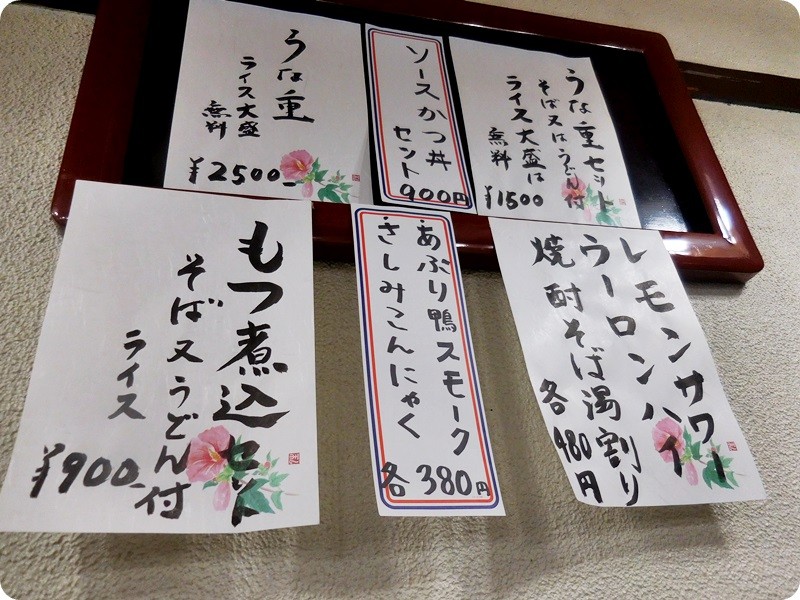 うな重セット
そば又はうどん付
ライス大盛は
無料
¥1500
ソースかつ丼
セット
900円
うな重
ライス大盛
無料
¥2500-
レモンサワー
ウーロンハイ
焼酎そば湯割り
各480円
あぶり鴨スモーク
さしみこんにゃく
各380円
もつ煮込セット
そば又うどん付
ライス
¥900-